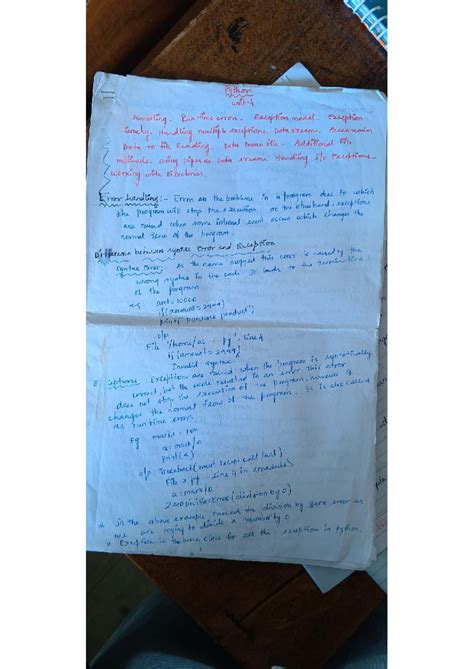 Python
Unit-4
Handling. Run-time error - Exception model. Exception
Handling multiple exceptions. Data
Data to file Reading, Data from file. Additional File
methods. using Data Handling I/o Exceptions.
Working with Directories.
Error handling:- Error are the problems in a program due to which
the program will stop the execution. on the otherhand, exceptions
are raised when some internal event occurs which changes the
normal flow of the program.
Difference between syntax Error and Exception
Syntax Error: As the name suggest this error is caused by the
wrong syntax in the code. It leads to the termination
of the program
eg: amt=10000
if(amount>2999)
print("purchase product")
o/p
File "/home/ , line 4
if (amount>2999)
invalid syntax.
Exceptions are raised when the program is syntactically
correct, but the code resulted in an error. This error
does not stop the execution of the program, however it
changes the normal flow of the program. It is also called
as run time errors.
Eg marks = 100
a = mark/0
print(a)
o/p Traceback (most recent call last)
File line 4 in <module>
a = mark/0
ZeroDivisionError (division by 0)
In the above example raised the division by zero error as
we are trying to divide a number by 0
Exception is the base class for all the exception in Python.